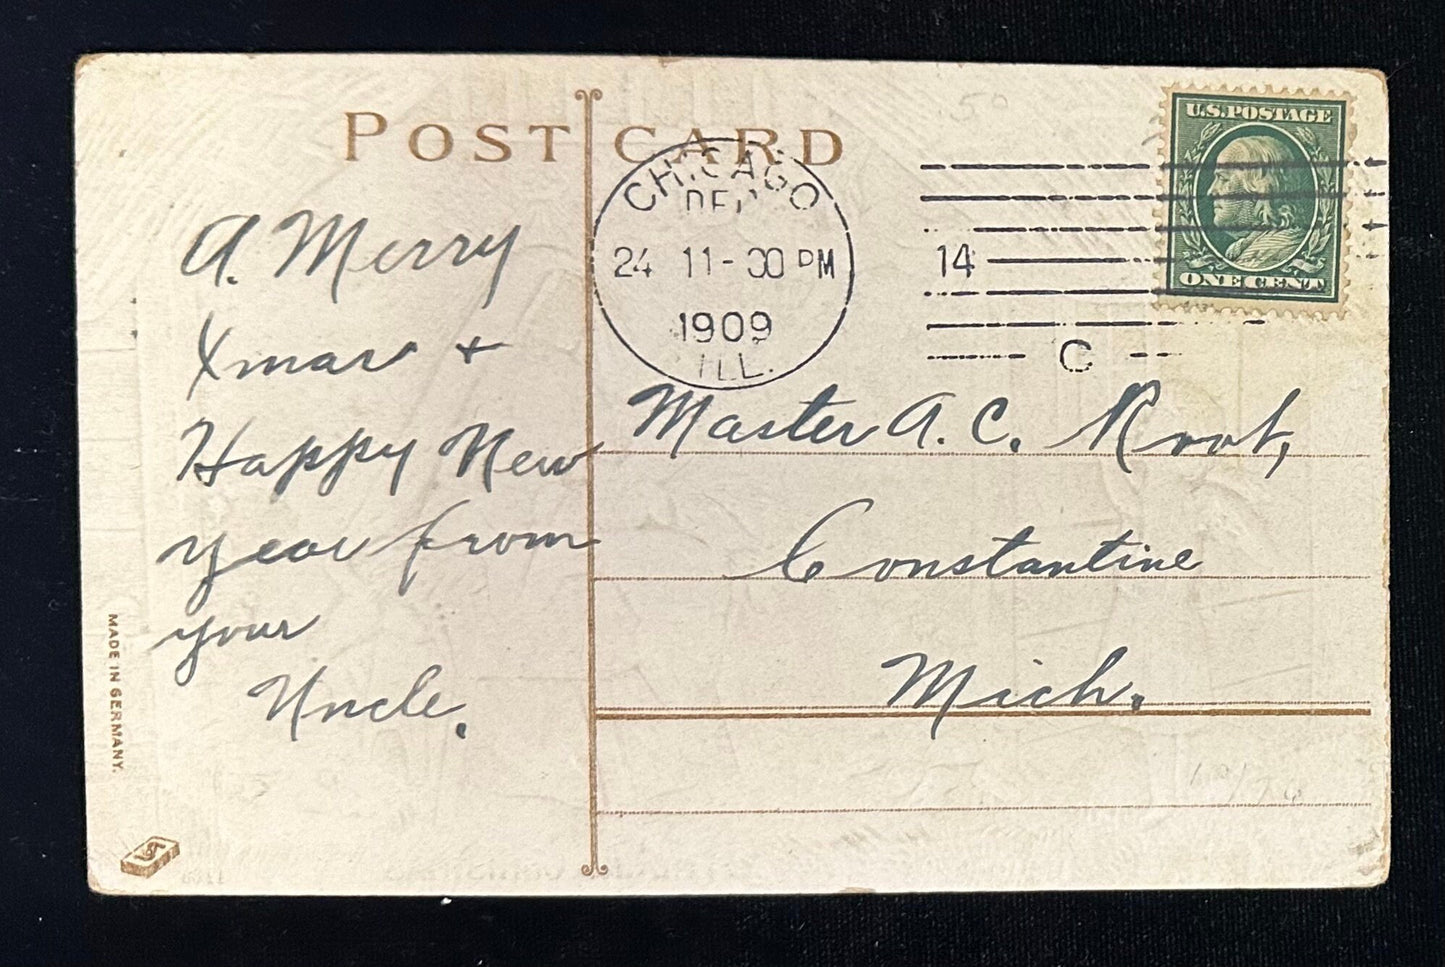 POST CARD
CHICAGO
DEC
24 11-30 PM
1909
ILL.
14
C
U.S. POSTAGE
ONE CENT
A. Merry
Xmas +
Happy New
year from
your
Uncle.
Master A. C. Root,
Constantine
Mich.
MADE IN GERMANY.